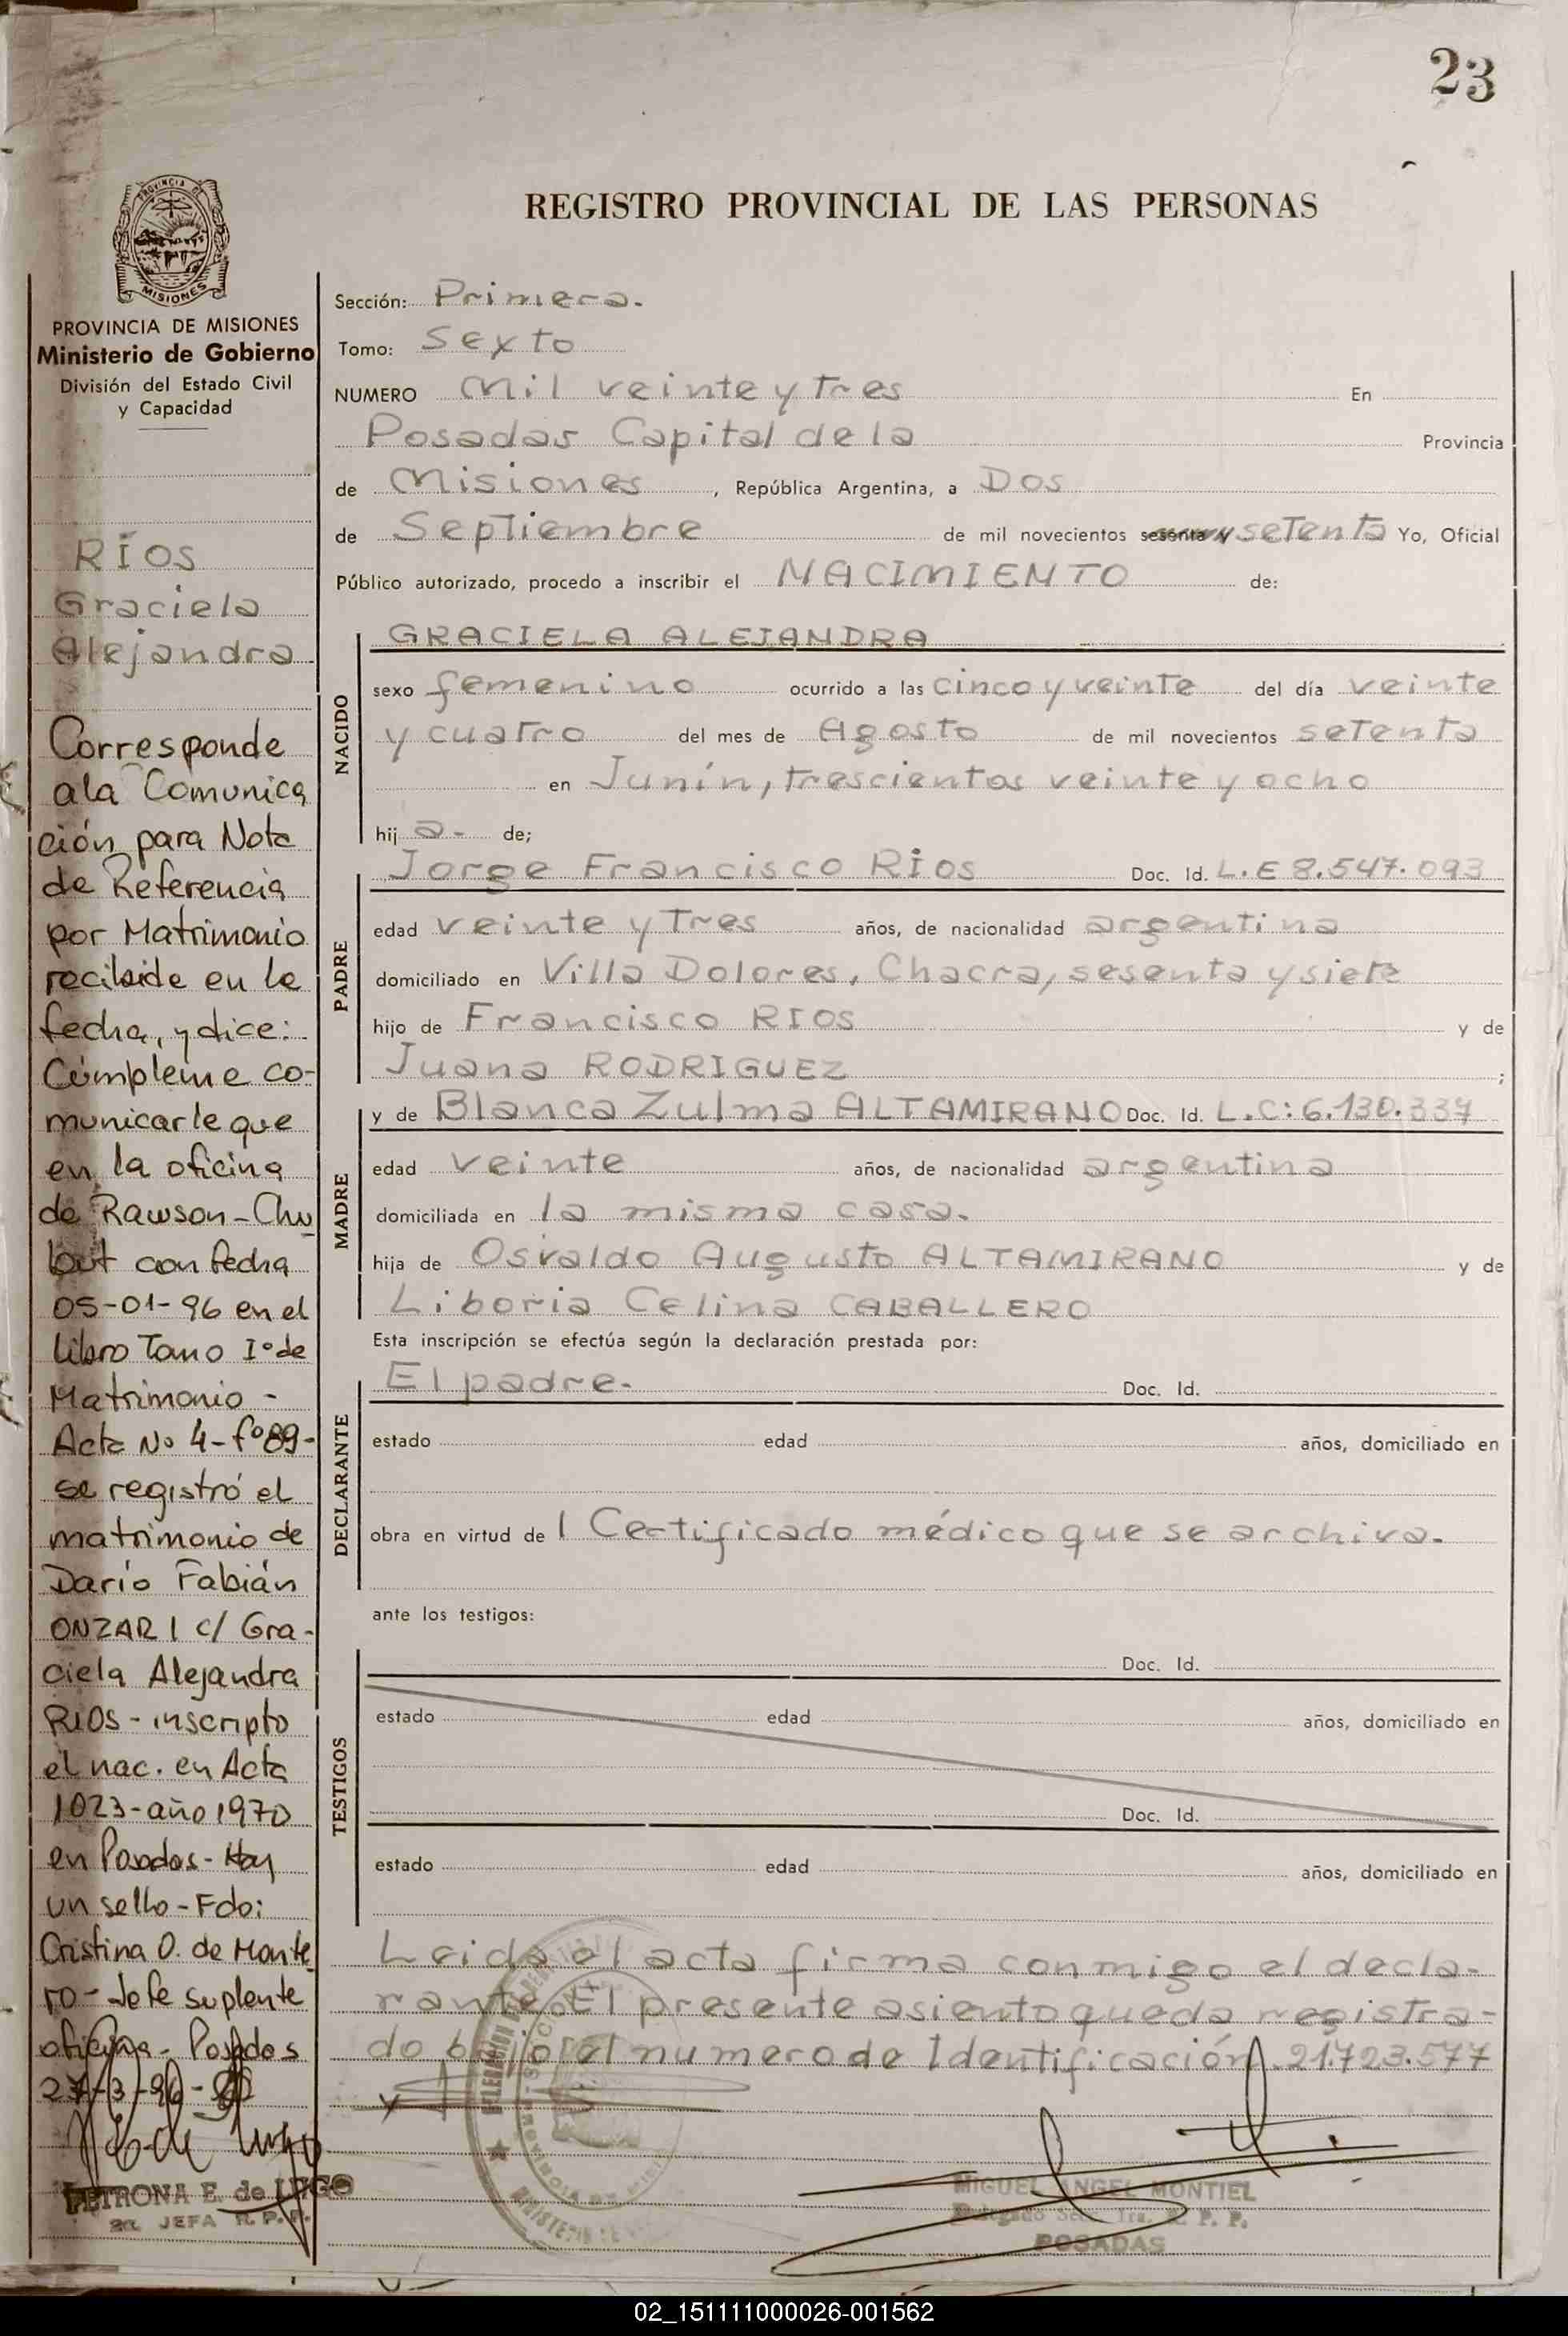 23
REGISTRO PROVINCIAL DE LAS PERSONAS
PROVINCIA DE
MISIONES
PROVINCIA DE MISIONES
Ministerio de Gobierno
División del Estado Civil
y Capacidad
RÍOS
Graciela
Alejandra
Corresponde
a la Comunica
ción para Nota
de Referencia
por Matrimonio
recibida en la
fecha, y dice:
Cúmpleme co-
municarle que
en la oficina
de Rawson-Chu
but con fecha
05-01-96 en el
Libro Tomo Iº de
Matrimonio -
Acta Nº 4-fº89-
se registró el
matrimonio de
Darío Fabián
ONZARI c/ Gra-
ciela Alejandra
RIOS - inscripto
el nac. en Acta
1023-año 1970
en Posadas - Hay
un sello - Fdo:
Cristina O. de Monte
ro - Jefe suplente
oficina - Posadas
27-3-96-
PETRONA E. de LUGO
JEFA R. P. P.
Sección: Primera.
Tomo: Sexto
NUMERO Mil veinte y tres En
Posadas Capital de la Provincia
de Misiones, República Argentina, a Dos
de Septiembre de mil novecientos sesenta y setenta Yo, Oficial
Público autorizado, procedo a inscribir el NACIMIENTO de:
NACIDO
GRACIELA ALEJANDRA
sexo femenino ocurrido a las cinco y veinte del día veinte
y cuatro del mes de Agosto de mil novecientos setenta
en Junín, trescientos veinte y ocho
hija.- de;
PADRE
Jorge Francisco RÍOS Doc. Id. L.E 8.547.093
edad veinte y tres años, de nacionalidad argentina
domiciliado en Villa Dolores, Chacra, sesenta y siete
hijo de Francisco RIOS y de
Juana RODRIGUEZ ;
MADRE
y de Blanca Zulma ALTAMIRANO Doc. Id. L.C: 6.130.337
edad veinte años, de nacionalidad argentina
domiciliada en la misma casa.
hija de Osvaldo Augusto ALTAMIRANO y de
Liboria Celina CABALLERO
Esta inscripción se efectúa según la declaración prestada por:
DECLARANTE
El padre.- Doc. Id.
estado edad años, domiciliado en
obra en virtud de l Certificado médico que se archiva.
ante los testigos:
TESTIGOS
Doc. Id.
estado edad años, domiciliado en
Doc. Id.
estado edad años, domiciliado en
Leida el acta firma conmigo el decla-
rante. El presente asiento queda registra-
do bajo el numero de Identificación 21.723.577
MIGUEL ANGEL MONTIEL
Delegado Secc. 1ra. R. P. P.
POSADAS
02_151111000026-001562